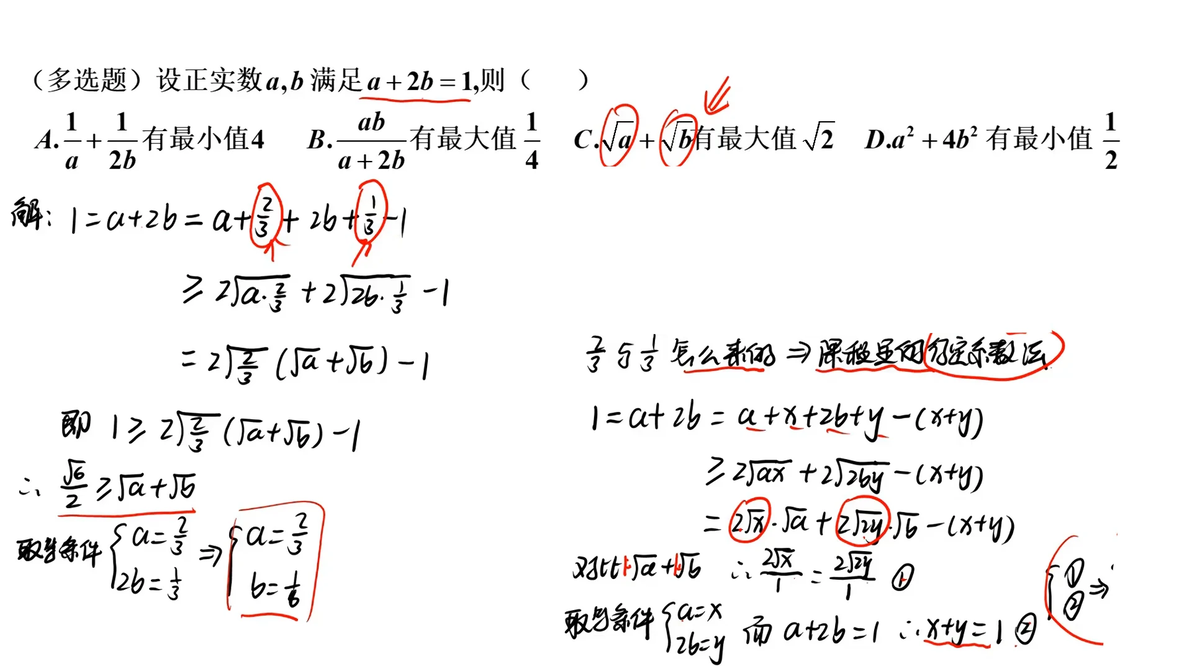 （多选题）设正实数a,b 满足a+2b=1,则（ ）
A. 1/a + 1/2b 有最小值4 B. ab/(a+2b) 有最大值 1/4 C.√a+√b有最大值 √2 D.a²+4b² 有最小值 1/2
解: 1=a+2b=a+2/3+2b+1/3-1
≥2√(a·2/3)+2√(2b·1/3)-1
=2√(2/3)(√a+√b)-1
即 1≥2√(2/3)(√a+√b)-1
∴ √6/2≥√a+√b
取等条件 {a=2/3 2b=1/3 ⇒ {a=2/3 b=1/6
2/3与1/3怎么来的⇒课程里的待定系数法
1=a+2b=a+x+2b+y-(x+y)
≥2√(ax)+2√(2by)-(x+y)
=2√x·√a+2√(2y)·√b-(x+y)
对比1·√a+1·√b ∴ 2√x/1=2√(2y)/1 ①
取等条件{a=x 2b=y 而a+2b=1 ∴x+y=1 ②
{① ②⇒